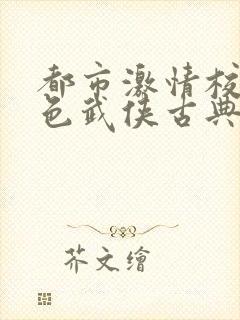 都市激情校
色武侠古典
芥文繪